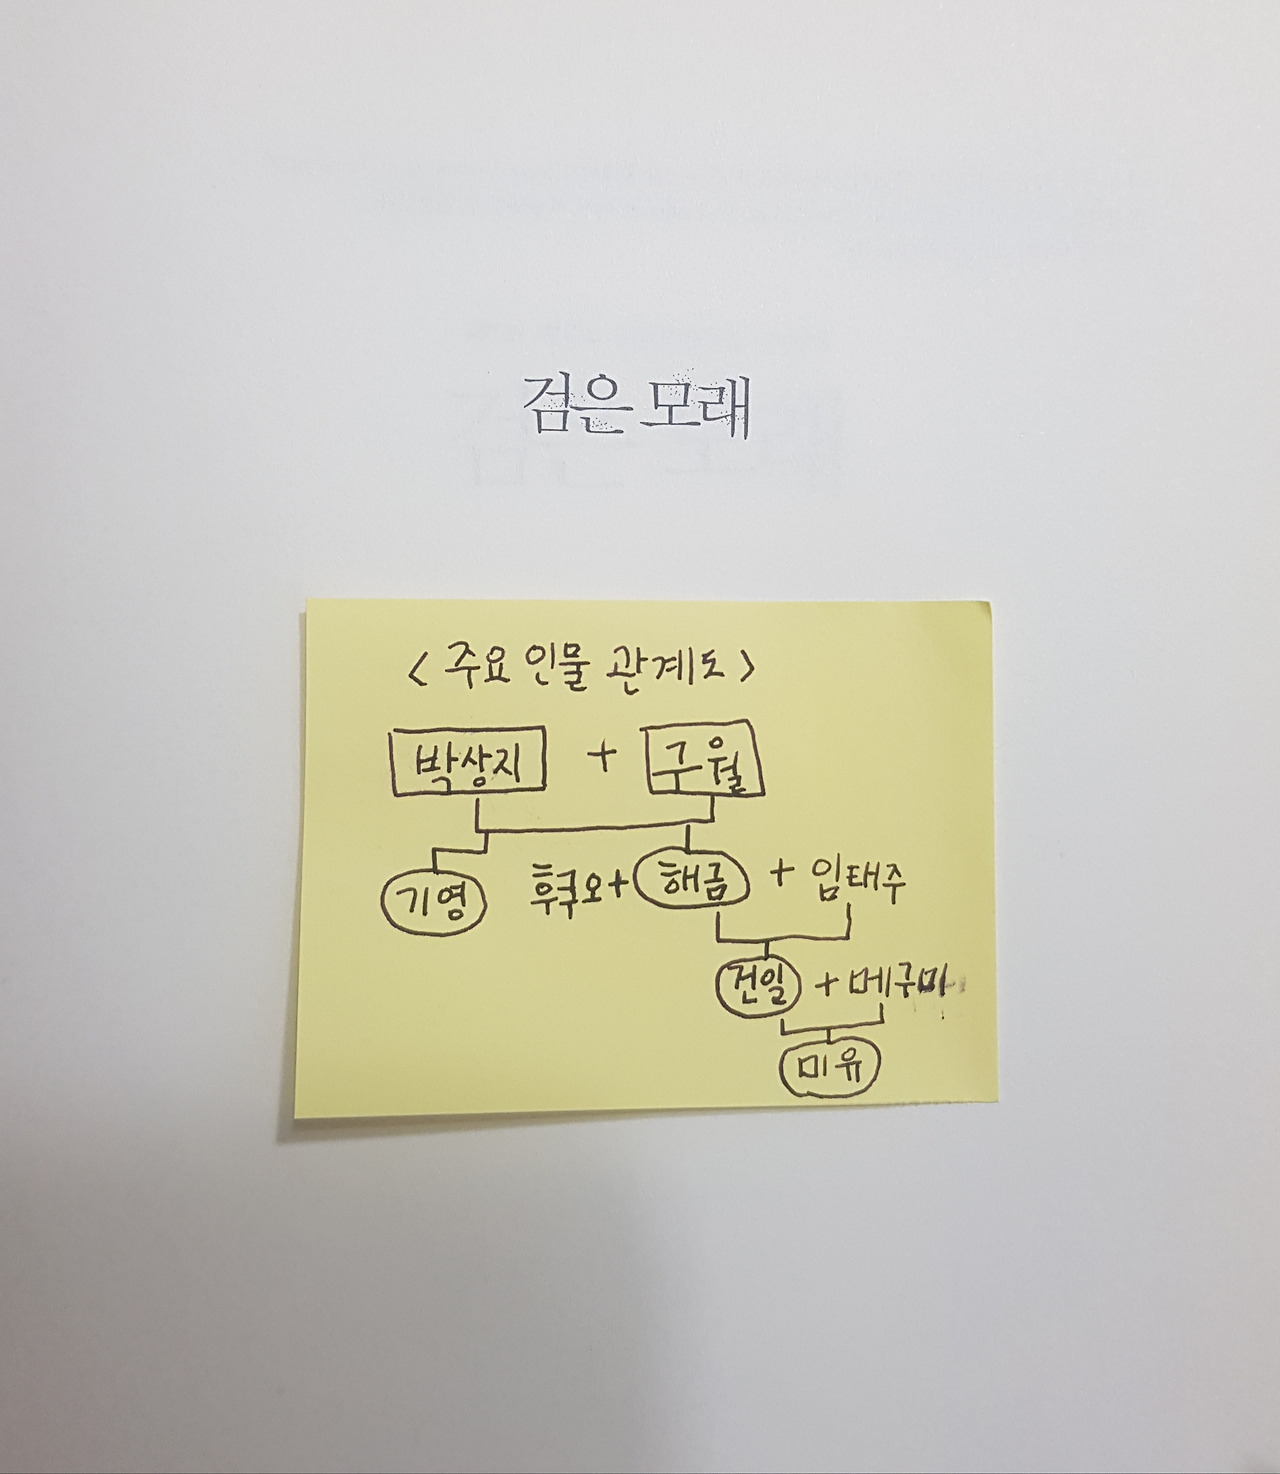 검은 모래
< 주요 인물 관계도 >
박상지 + 구월
기영 후쿠오 + 해금 + 임태주
건일 + 메구미
미유